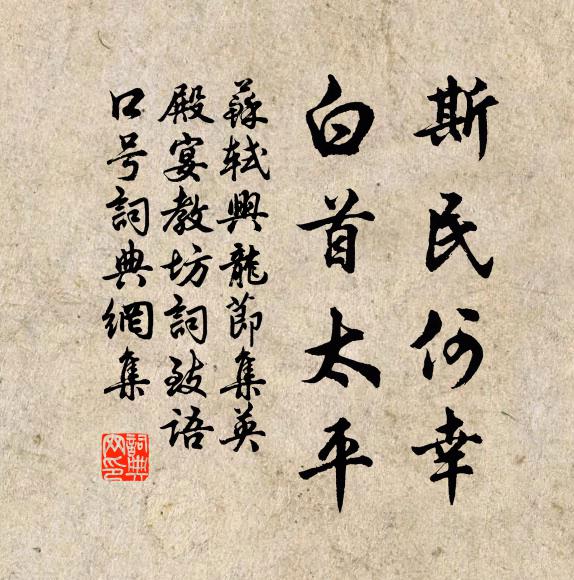 斯民何幸
白首太平
蘇軾興龍節集英
殿宴教坊詞致語
口号詞典網集
詞典网印